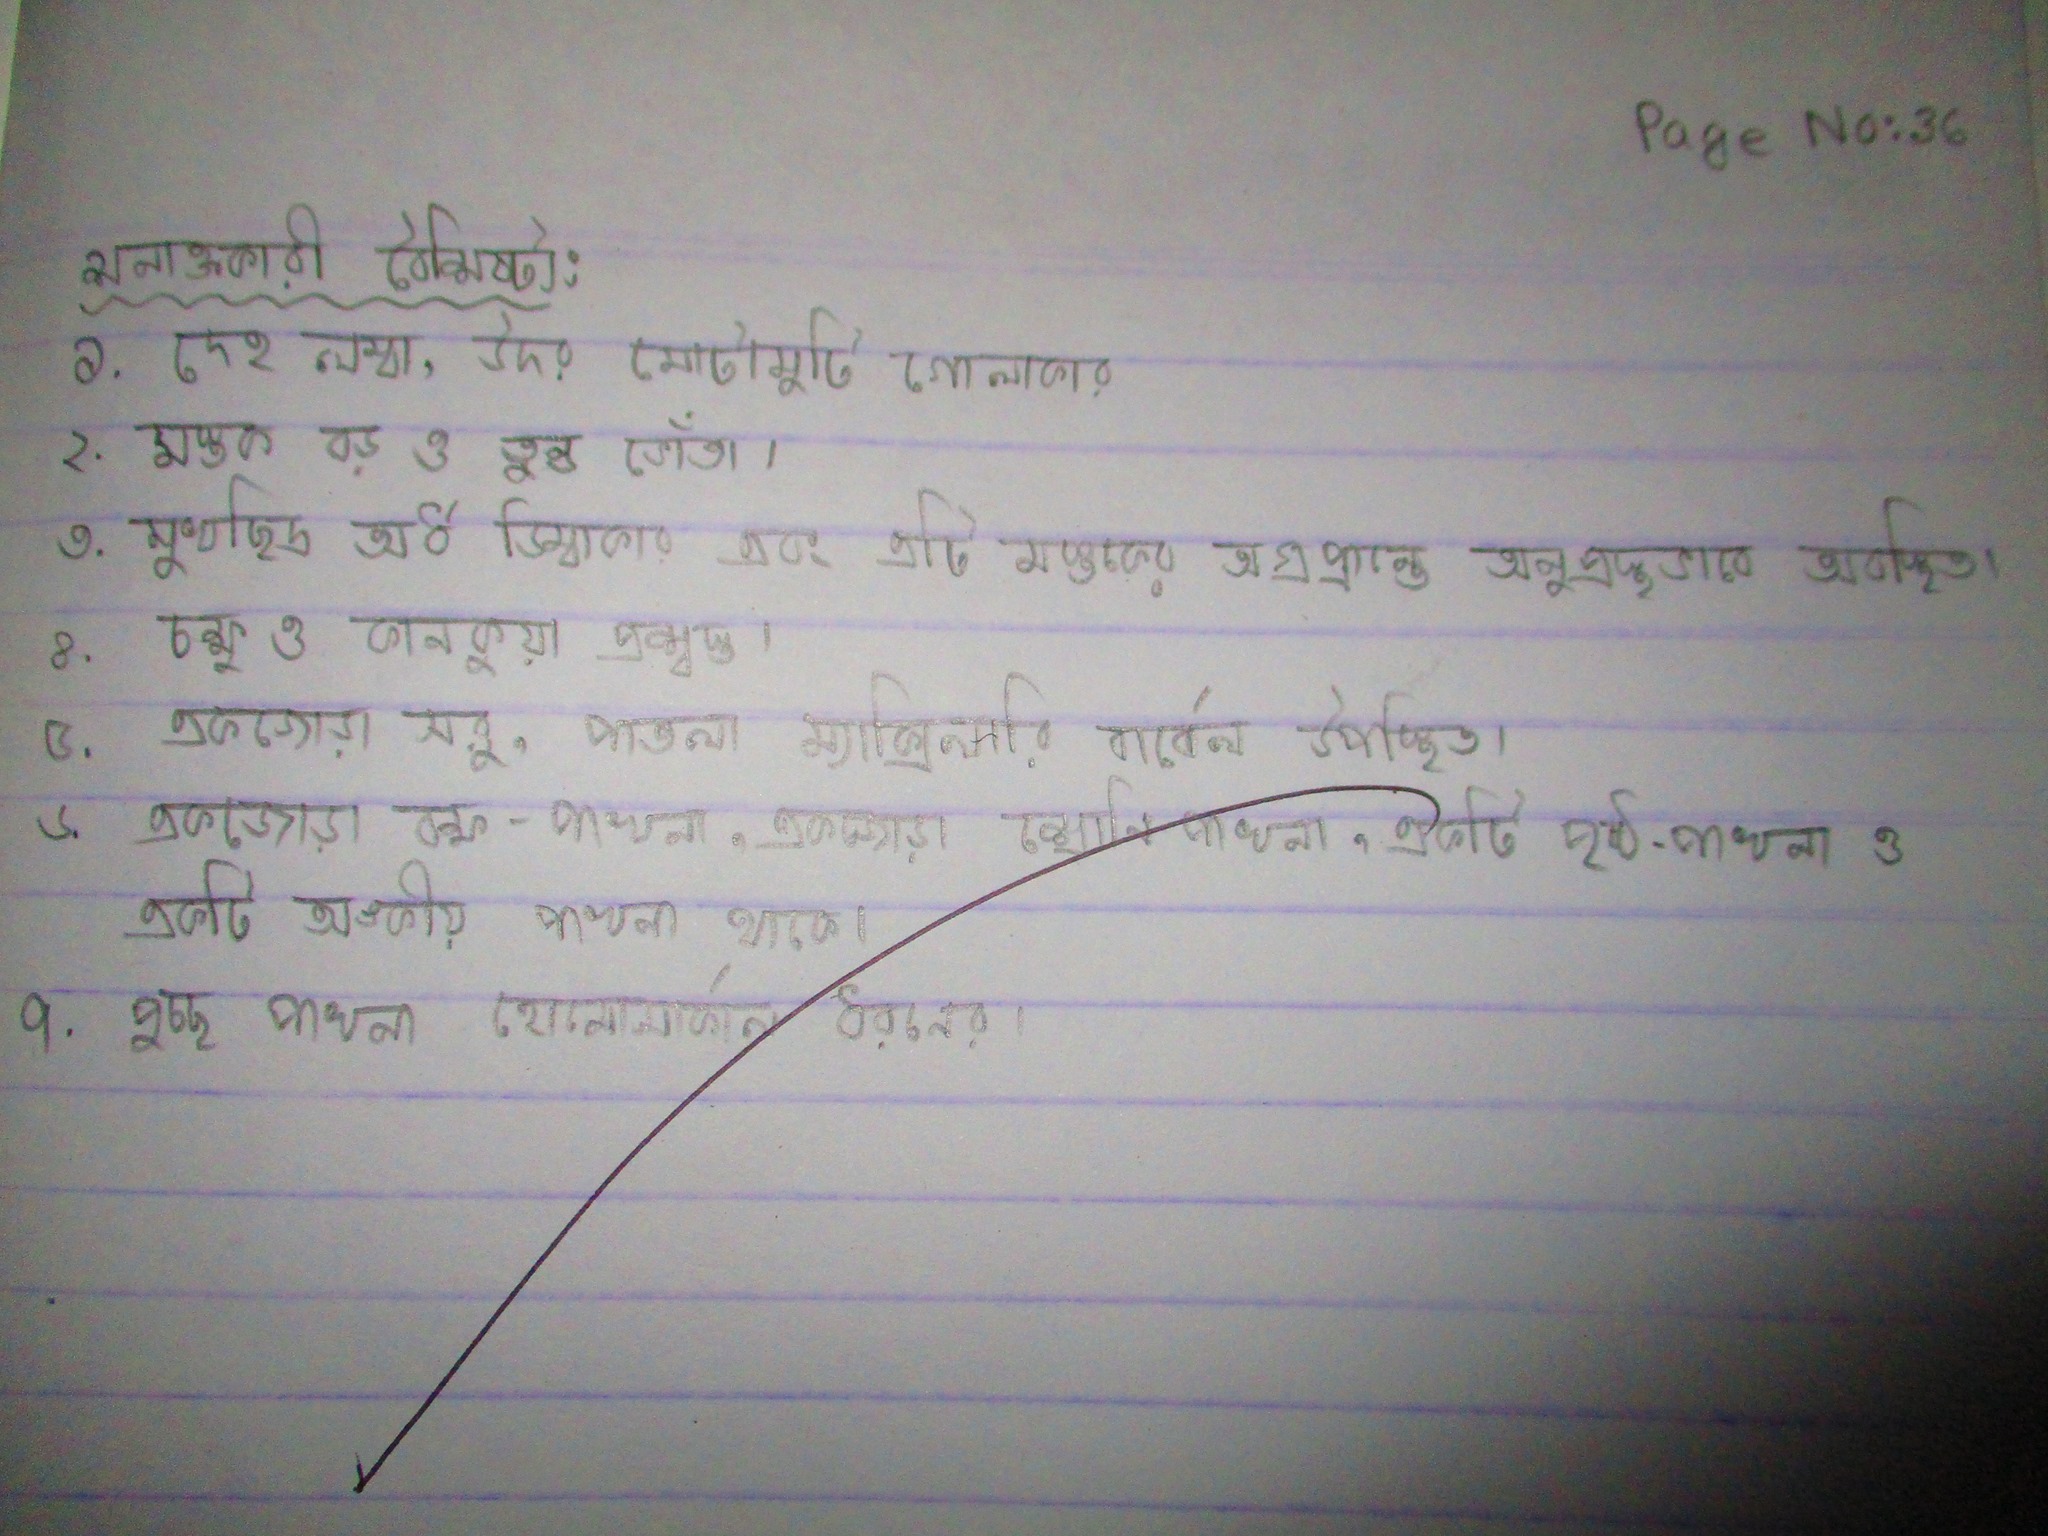 Page No:36
শনাক্তকারী বৈশিষ্ট্য:
১. দেহ লম্বা, উদর মোটামুটি গোলাকার
২. মস্তক বড় ও তুন্ড ভোঁতা।
৩. মুখছিদ্র অর্ধ ডিম্বাকার এবং এটি মস্তকের অগ্রপ্রান্তে অনুপ্রস্থভাবে অবস্থিত।
৪. চক্ষু ও কানকুয়া প্রশস্ত।
৫. একজোড়া সরু, পাতলা ম্যাক্সিলারি বার্বেল উপস্থিত।
৬. একজোড়া বক্ষ-পাখনা, একজোড়া শ্রোণি পাখনা, একটি পৃষ্ঠ-পাখনা ও
একটি অঙ্কীয় পাখনা থাকে।
৭. পুচ্ছ পাখনা হোমোসার্কাল ধরনের।